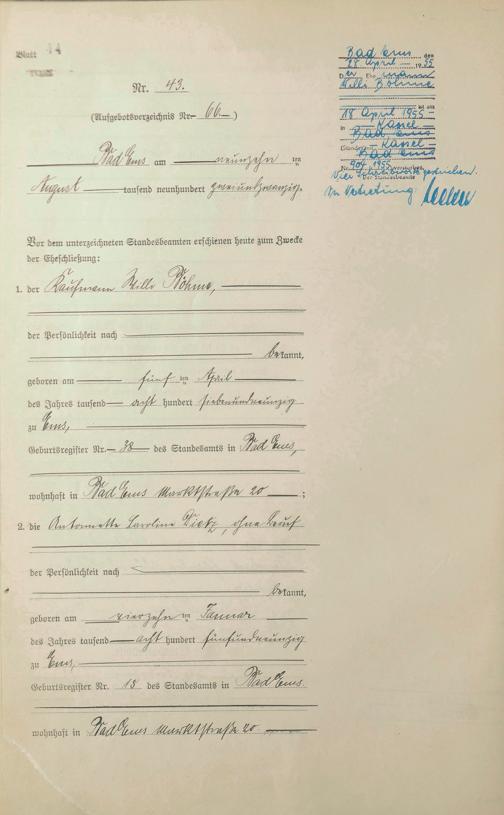 Blatt 44
Bad Ems den
28 April 1955
Der Ehemann
Willi Böhme
ist am
18 April 1955
in Kassel
Bad Ems
(Standesamt Kassel
Bad Ems
Nr. 904 1955) verstorben.
Vier Schreibworte gestrichen.
Der Standesbeamte
In Vertretung:
Nr. 43.
(Aufgebotsverzeichnis Nr. 66.)
Bad Ems am neunzehnten
August tausend neunhundert zweiundzwanzig.
Vor dem unterzeichneten Standesbeamten erschienen heute zum Zwecke
der Eheschließung:
1. der Kaufmann Willi Böhme,
der Persönlichkeit nach
bekannt,
geboren am fünften April
des Jahres tausend acht hundert siebenundneunzig
zu Ems,
Geburtsregister Nr. 38 des Standesamts in Bad Ems,
wohnhaft in Bad Ems Marktstraße 20 ;
2. die Antoinette Caroline Dietz, ohne Beruf
der Persönlichkeit nach
bekannt,
geboren am vierzehnten Januar
des Jahres tausend acht hundert fünfundneunzig
zu Ems,
Geburtsregister Nr. 15 des Standesamts in Bad Ems.
wohnhaft in Bad Ems Marktstraße 20